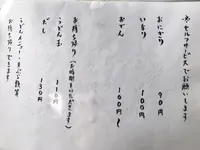 ※セルフサービスでお願いします
おにぎり 90円
いなり 100円
おでん 100円
お持ち帰り(お時間をいただきます)
うどん玉 110円
だし 130円
うどんメニュー
お持ち帰りできます